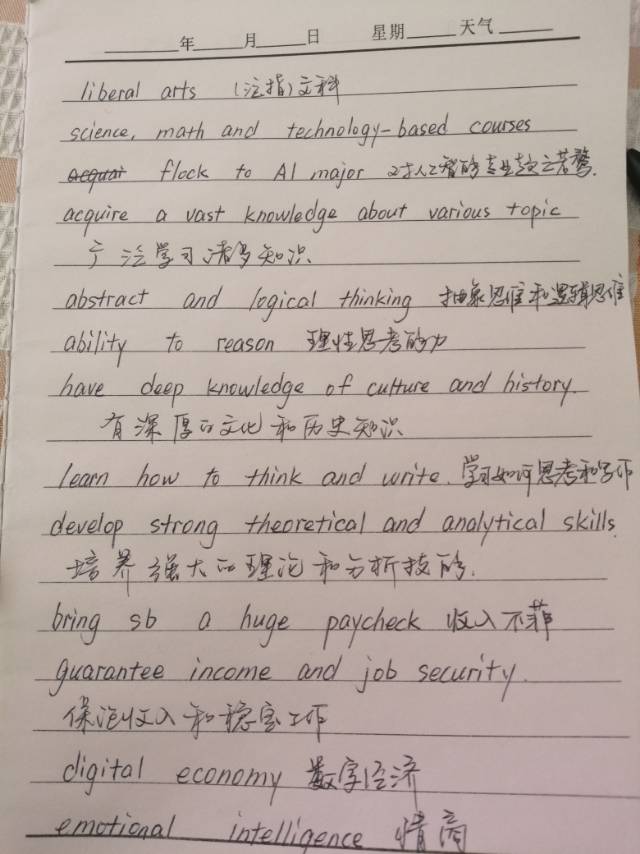 年 月 日 星期 天气
liberal arts (泛指)文科
science, math and technology-based courses
acquai flock to AI major 对人工智能专业趋之若鹜.
acquire a vast knowledge about various topic
广泛学习诸多知识
abstract and logical thinking 抽象思维和逻辑思维
ability to reason 理性思考能力
have deep knowledge of culture and history.
有深厚的文化和历史知识
learn how to think and write. 学习如何思考和写作
develop strong theoretical and analytical skills.
培养强大的理论和分析技能.
bring sb a huge paycheck 收入不菲
guarantee income and job security.
保证收入和稳定工作
digital economy 数字经济
emotional intelligence 情商